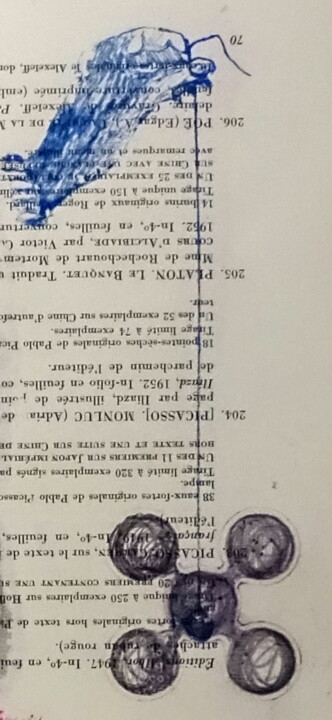 Éditions 1947. In-4°, en feuil
attaches de ruban rouge).
fortes originales hors texte de Pi
unique à 250 exemplaires sur Holl
20 PREMIERS CONTENANT UNE SU
203. PICASSO. CARMEN, sur le texte de
français, 1949. In-4°, en feuilles,
l'éditeur)
38 eaux-fortes originales de Pablo Picasso
lampe.
Tirage limité à 320 exemplaires signés pa
UN DES 11 PREMIERS SUR JAPON IMPÉRIAL
HORS TEXTE ET UNE SUITE SUR CHINE DE
204. [PICASSO]. MONLUC (Adria de
page par Iliazd, illustrée de poin
Iliazd, 1952. In-folio en feuilles, co
de parchemin de l'éditeur.
18 pointes-sèches originales de Pablo Pica
Tirage limité à 74 exemplaires.
Un des 52 exemplaires sur Chine d'autrefo
teur.
205. PLATON. LE BANQUET. Traduit
Mme de Rochechouart de Mortem
COURS D'ALCIBIADE, par Victor Co
1952. In-4°, en feuilles, couvertur
14 burins originaux de Roger
Tirage unique à 150 exemplaires sur vélin
UN DES 25 EXEMPLAIRES
SUR CHINE AVEC UNE
avec remarques et un
206. POE (Edgar A.). DE LA M
Gravures de Alexeïeff. P
couverture imprimée (emb
eaux-fortes originales de Alexeïeff, don
70